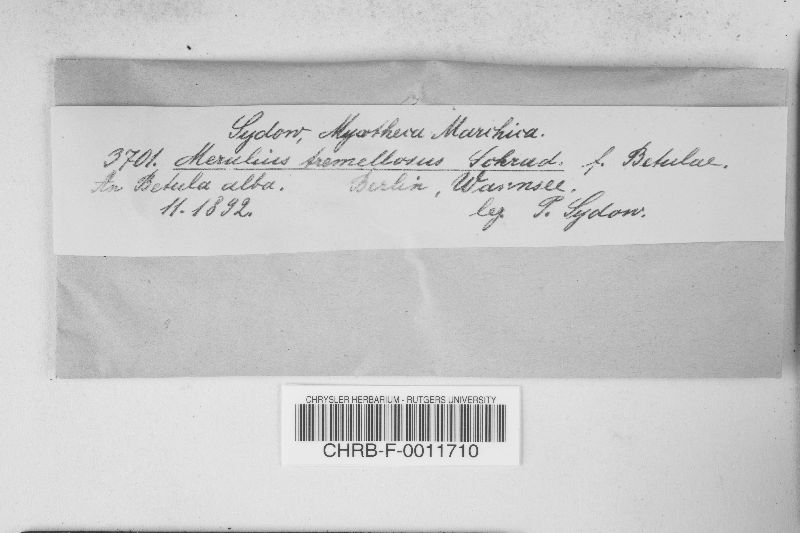 Sydow, Mycotheca Marchica.
3701. Merulius tremellosus Schrad. f. Betulae.
An Betula alba. Berlin, Wannsee.
11. 1892. leg. P. Sydow.
CHRYSLER HERBARIUM - RUTGERS UNIVERSITY
CHRB-F-0011710